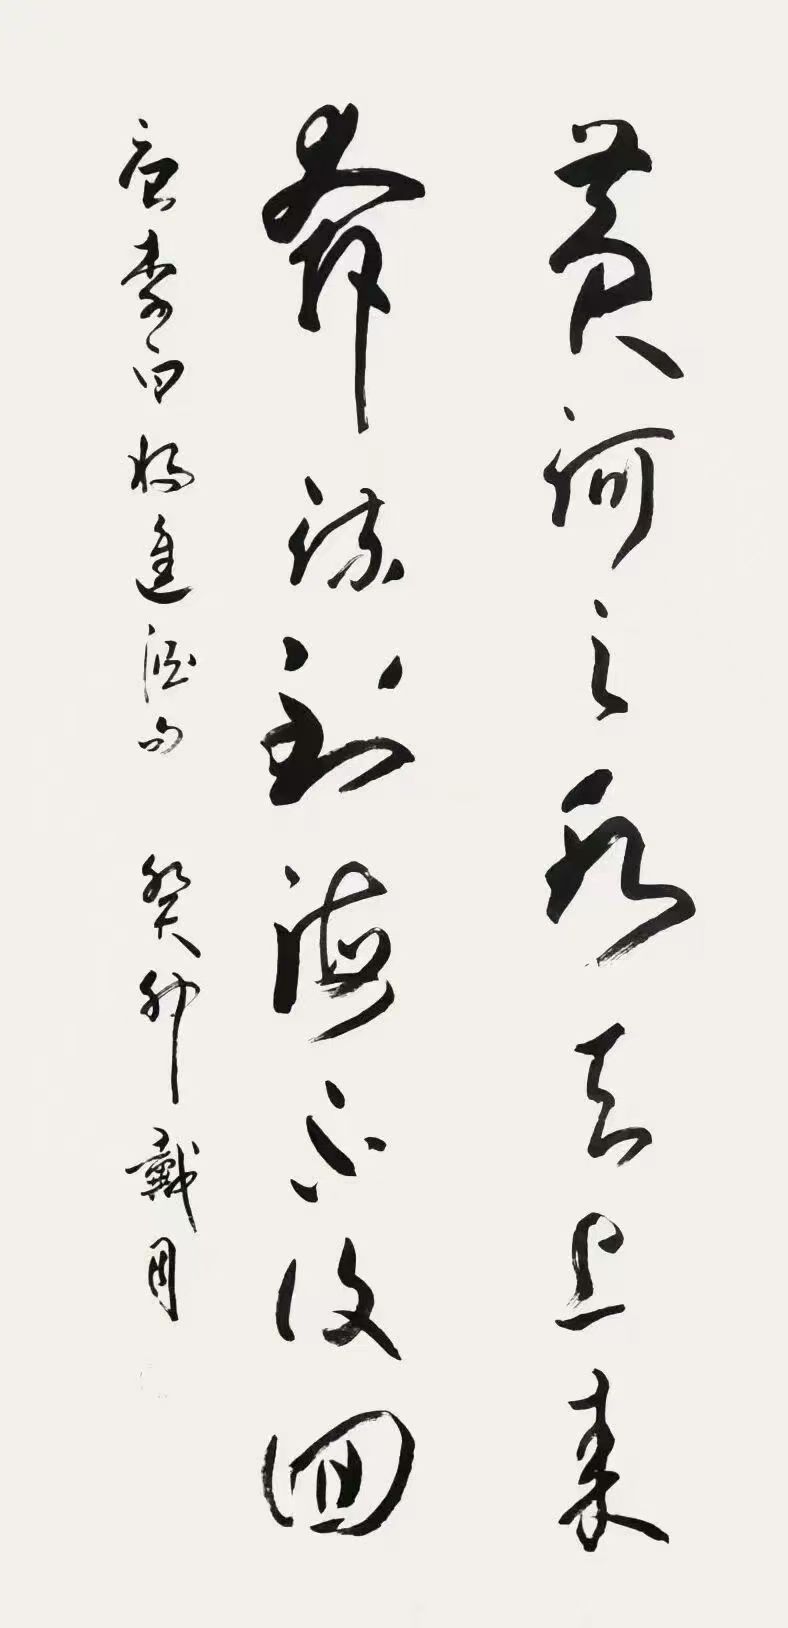 黄河之水天上来
奔流到海不复回
唐李白将進酒句 癸卯 戴月